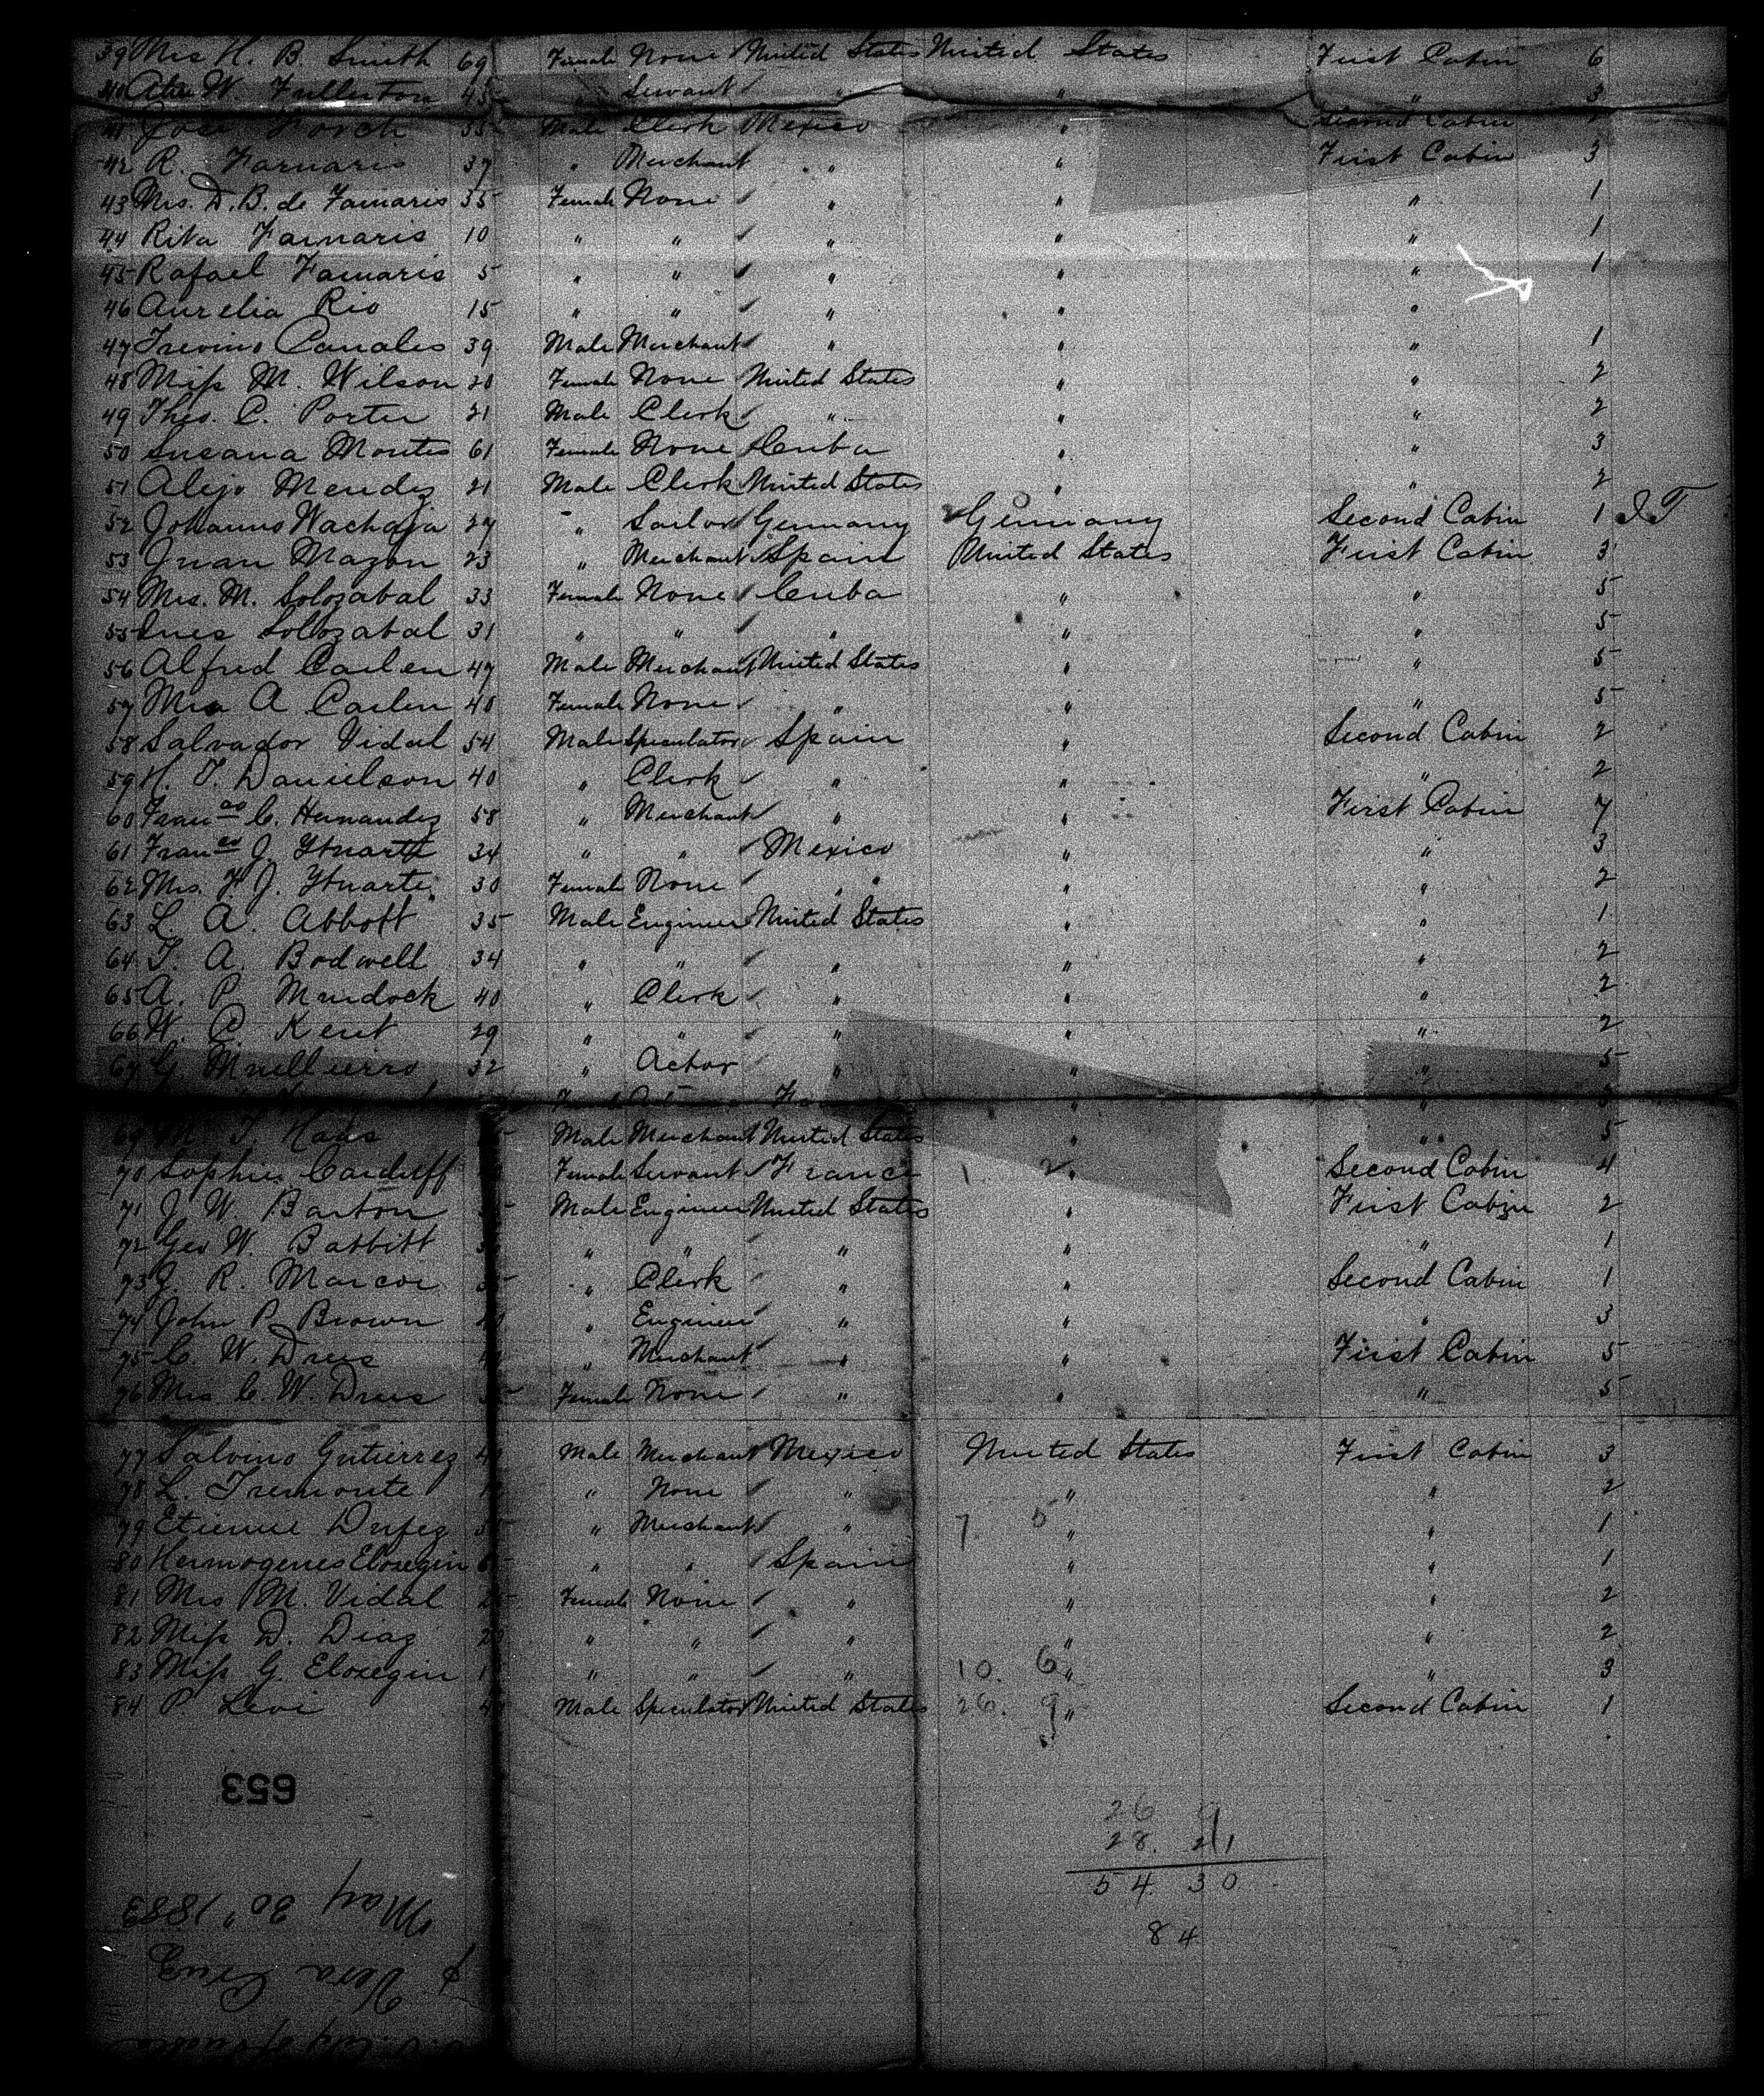 39 Mrs H. B. Smith 69 Female None United States United States First Cabin 6
40 W. Fullerton 45 " Servant " " " 3
41 Jose 35 Male Clerk Mexico " Second Cabin
42 R. Farnaris 37 " Merchant " " First Cabin 3
43 Mrs. D. B. de Farnaris 35 Female None " " " 1
44 Rita Farnaris 10 " " " " " 1
45 Rafael Farnaris 5 " " " " " 1
46 Aurelia Rio 15 " " " " "
47 Trevino Canales 39 Male Merchant " " " 1
48 Miss M. Wilson 20 Female None United States " " 2
49 Theo. C. Porter 21 Male Clerk " " " 2
50 Susana Montes 61 Female None Cuba " " 3
51 Alejo Mendez 21 Male Clerk United States " " 2
52 Johanns 27 " Sailor Germany Germany Second Cabin 1
53 Juan Mazon 23 " Merchant Spain United States First Cabin 3
54 Mrs. M. Solozabal 33 Female None Cuba " " 5
55 Ines Solozabal 31 " " " " " 5
56 Alfred Carlen 47 Male Merchant United States " " 5
57 Mrs A Carlen 40 Female None " " " 5
58 Salvador Vidal 54 Male Speculator Spain " Second Cabin 2
59 H. T. Danielson 40 " Clerk " " " 2
60 Franco C. Hernandez 58 " Merchant " " First Cabin 7
61 Franco J. Ituarte 34 " " Mexico " " 3
62 Mrs. F. J. Ituarte 30 Female None " " " 2
63 L. A. Abbott 35 Male Engineer United States " " 1
64 T. A. Bodwell 34 " " " " " 2
65 A. P. Murdock 40 " Clerk " " " 2
66 W. C. Kent 29 " " " " " 2
67 G 32 " Actor " " " 5
69 T. Haas Male Merchant United States " " 5
70 Sophie Carduff Female Servant France 1 2 " Second Cabin 4
71 J. W. Barton Male Engineer United States " First Cabin 2
72 Geo W. Babbitt " " " " " 1
73 J. R. Marcoe " Clerk " " Second Cabin 1
74 John P. Brown " Engineer " " " 3
75 C. W. Drees " Merchant " " First Cabin 5
76 Mrs C. W. Drees Female None " " " 5
77 Salvino Gutierrez Male Merchant Mexico United States First Cabin 3
78 L. Tremonte " None " " " 2
79 Etienne Dufez " Merchant " 7 5 " " 1
80 Hermogenes Elosegin " " Spain " " 1
81 Mrs M. Vidal Female None " " " 2
82 Miss D. Diaz " " " " " 2
83 Miss G. Elosegin " " " 10. 6 " " 3
84 P Levi Male Speculator United States 26. 9 " Second Cabin 1
653
26
28. 21
54. 30
84
May 30, 1883
Vera Cruz